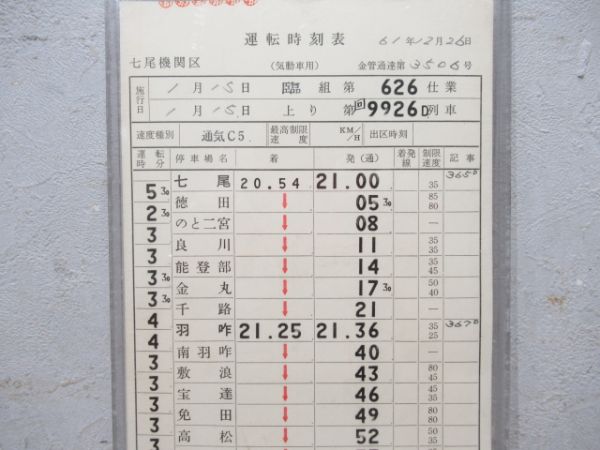 運転時刻表 61年12月26日
七尾機関区 (気動車用) 金管通達第3506号
施行日 1月15日 臨 組第 626 仕業
1月15日 上り 第 回9926D 列車
速度種別 通気C5 最高制限速度 KM/H 出区時刻
運転時分 停車場名 着 発(通) 着発線 制限速度 記事
七尾 20.54 21.00 35
5 30 徳田 ↓ 05 30 85 80
2 30 のと二宮 ↓ 08 —
3 良川 ↓ 11 35 35
3 能登部 ↓ 14 35 45
3 30 金丸 ↓ 17 30 50 40
3 30 千路 ↓ 21 —
4 羽咋 21.25 21.36 35 25
4 南羽咋 ↓ 40 —
3 敷浪 ↓ 43 80 45
3 宝達 ↓ 46 80 45
3 免田 ↓ 49 80 80
3 高松 ↓ 52 50 35
3